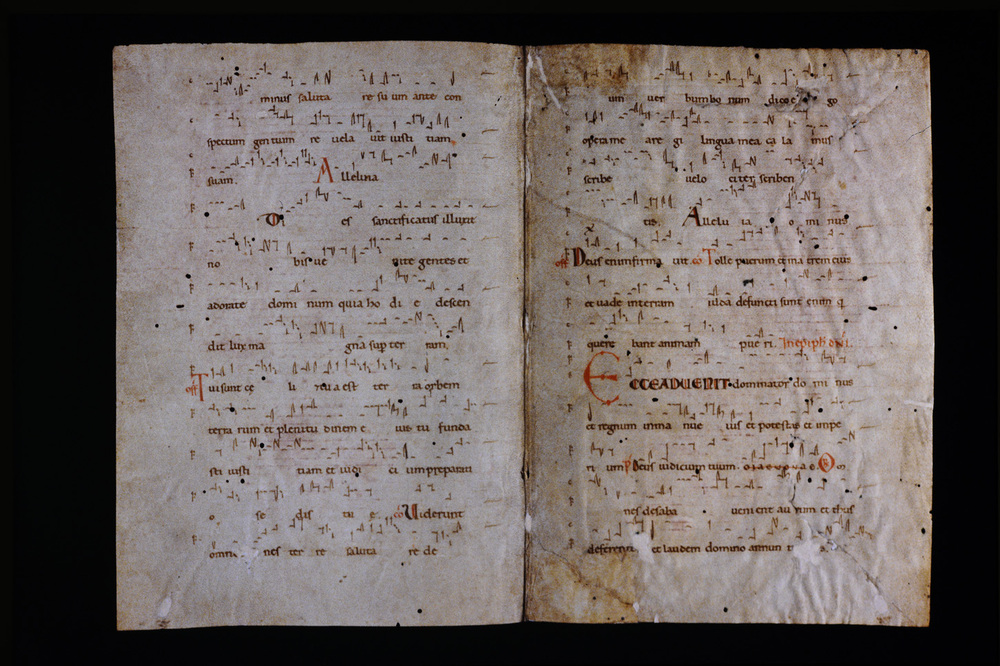 minus saluta re suum ante con
spectum gentium re vela uit iusti tiam
suam. Alleluia
Di es sanctificatus illuxit
no bis ue nite gentes et
adorate domi num quia ho di e descen
dit lux ma gna sup ter ram.
off Tui sunt ce li et tua est ter ra orbem
terra rum et plenitu dinem e ius tu funda
sti iusti tiam et iudi ci um preparatio
o se dis tu e. co Uiderunt
omne nes ter re saluta re de
um uer bum bo num dico e go
opera me a re gi lingua mea ca la mus
scribe uelo citer scriben
tis. Allelu ia o mi nus
off Deus enim firma uit. co Tolle puerum et ma trem eius
et uade in terram iuda defuncti sunt enim q
quere bant animam pue ri. In epiphani.
ECCE ADUENIT dominator do mi nus
et regnum in ma nu e ius et potestas et impe
ri um P Deus iudicium tuum. Om
nes de saba uenient au rum et thus
deferent et laudem domino annun t